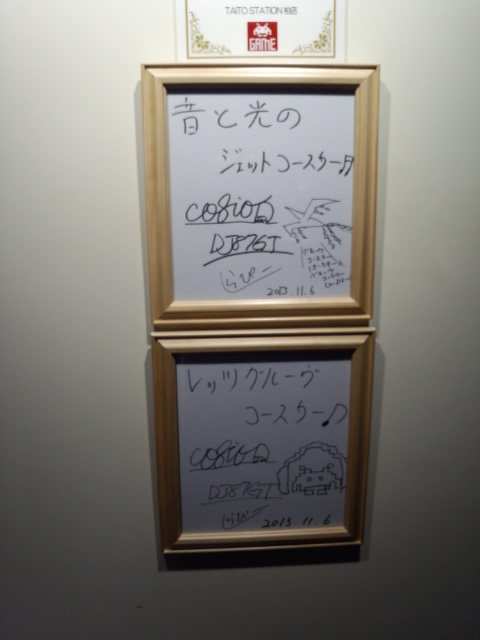 TAITO STATION 柏店
GAME
音と光の
ジェットコースター♬
COSIO
DJ8761
らぴー
2013.11.6
レッツグルーヴ
コースター♪
COSIO
DJ8761
らぴー
2013.11.6